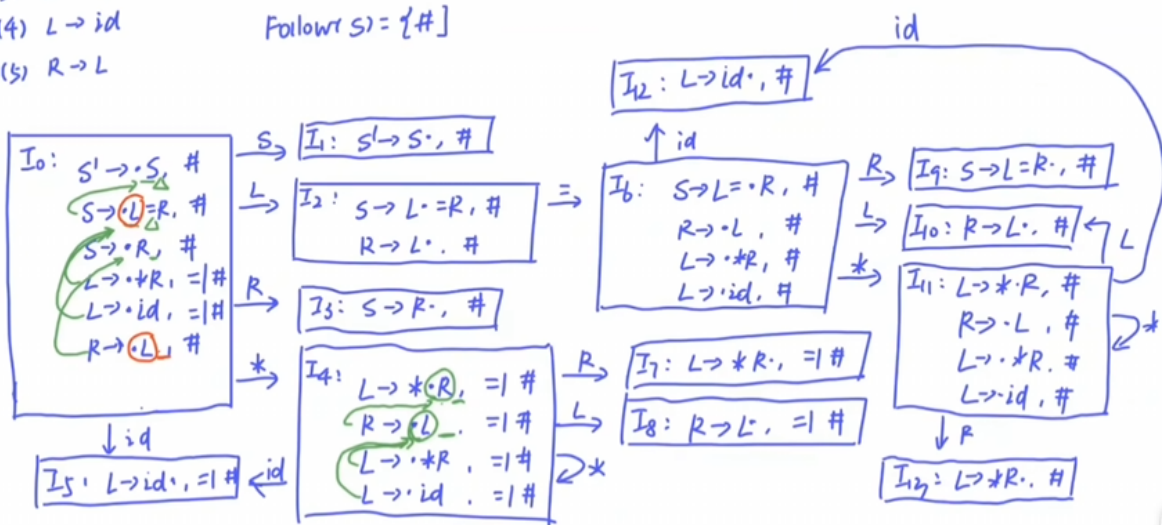 (4) L → id
Follow(S) = {#]
(5) R → L
I0:
S' → ·S, #
S → ·L=R, #
S → ·R, #
L → ·*R, =|#
L → ·id, =|#
R → ·L, #
S
I1: S' → S·, #
L
I2: S → L·=R, #
R → L·, #
R
I3: S → R·, #
*
I4:
L → *·R, =|#
R → ·L, =|#
L → ·*R, =|#
L → ·id, =|#
*
id
id
I5: L → id·, =|#
=
I6: S → L=·R, #
R → ·L, #
L → ·*R, #
L → ·id, #
R
I7: L → *R·, =|#
L
I8: R → L·, =|#
id
I12: L → id·, #
id
R
I9: S → L=R·, #
L
I10: R → L·, #
L
*
I11: L → *·R, #
R → ·L, #
L → ·*R, #
L → ·id, #
*
R
I13: L → *R·, #